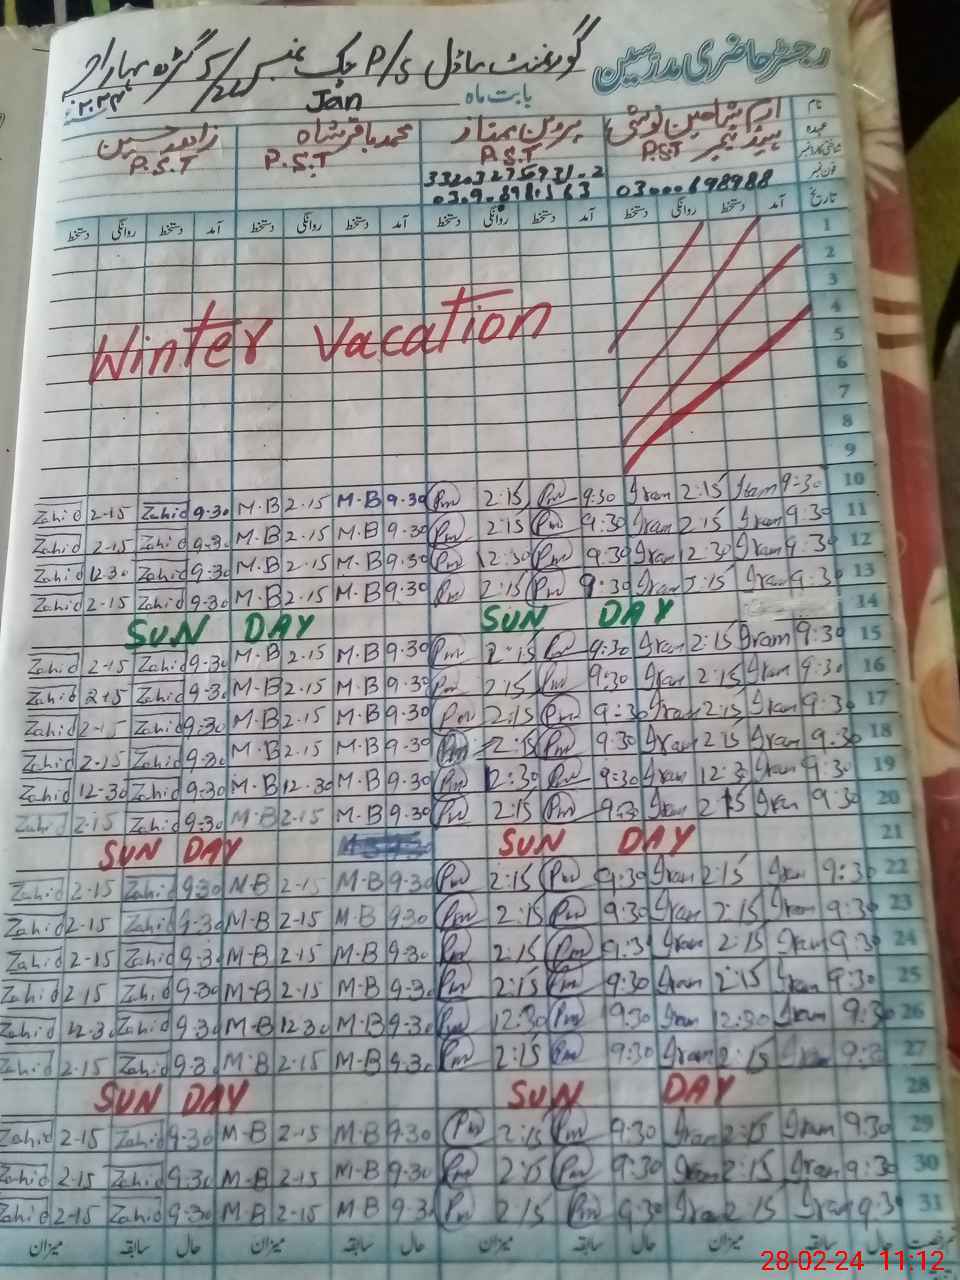 رجسٹر حاضری مدرسین
گورنمنٹ ماڈل P/S چک نمبر
بابت ماہ Jan
نام
عہدہ
شناختی کارڈ نمبر
فون نمبر
تاریخ
ارم شاہین پروین ممتاز محمد باقر شاہ زاہد حسین
ہیڈ ٹیچر PST P.S.T P.S.T P.S.T
03000698988
آمد دستخط روانگی دستخط آمد دستخط روانگی دستخط آمد دستخط روانگی دستخط آمد دستخط روانگی دستخط
1
2
3
4
Winter Vacation
5
6
7
8
9
Zahid 2-15 Zahid 9-30 M-B 2-15 M-B 9-30 Pm 2:15 Pm 9:30 Iram 2:15 Iram 9:30 10
Zahid 2-15 Zahid 9-30 M-B 2-15 M-B 9-30 Pm 2:15 Pm 9:30 Iram 2:15 Iram 9:30 11
Zahid 12-30 Zahid 9-30 M-B 2-15 M-B 9-30 Pm 12:30 Pm 9:30 Iram 12:30 Iram 9:30 12
Zahid 2-15 Zahid 9-30 M-B 2-15 M-B 9-30 Pm 2:15 Pm 9:30 Iram 2:15 Iram 9:30 13
SUN DAY SUN DAY 14
Zahid 2-15 Zahid 9-30 M-B 2-15 M-B 9-30 Pm 2:15 Pm 9:30 Iram 2:15 Iram 9:30 15
Zahid 2-15 Zahid 9-30 M-B 2-15 M-B 9-30 Pm 2:15 Pm 9:30 Iram 2:15 Iram 9:30 16
Zahid 2-15 Zahid 9-30 M-B 2-15 M-B 9-30 Pm 2:15 Pm 9:30 Iram 2:15 Iram 9:30 17
Zahid 2-15 Zahid 9-30 M-B 2-15 M-B 9-30 Pm 2:15 Pm 9:30 Iram 2:15 Iram 9:30 18
Zahid 12-30 Zahid 9-30 M-B 12-30 M-B 9-30 Pm 12:30 Pm 9:30 Iram 12:3 Iram 9:30 19
Zahid 2-15 Zahid 9-30 M-B 2-15 M-B 9-30 Pm 2:15 Pm 9:30 Iram 2:15 Iram 9:30 20
SUN DAY SUN DAY 21
Zahid 2-15 Zahid 9-30 M-B 2-15 M-B 9-30 Pm 2:15 Pm 9:30 Iram 2:15 Iram 9:30 22
Zahid 2-15 Zahid 9-30 M-B 2-15 M-B 9-30 Pm 2:15 Pm 9:30 Iram 2:15 Iram 9:30 23
Zahid 2-15 Zahid 9-3 M-B 2-15 M-B 9-3 Pm 2:15 Pm 9:3 Iram 2:15 Iram 9:30 24
Zahid 2-15 Zahid 9-30 M-B 2-15 M-B 9-3 Pm 2:15 Pm 9:30 Iram 2:15 Iram 9:30 25
Zahid 12-30 Zahid 9-30 M-B 12-30 M-B 9-30 Pm 12:30 Pm 9:30 Iram 12:30 Iram 9:30 26
Zahid 2-15 Zahid 9-3 M-B 2-15 M-B 9-3 Pm 2:15 Pm 9:30 Iram 2:15 Iram 9:3 27
SUN DAY SUN DAY 28
Zahid 2-15 Zahid 9-30 M-B 2-15 M-B 9-30 Pm 2:15 Pm 9:30 Iram 2:15 Iram 9:30 29
Zahid 2-15 Zahid 9-30 M-B 2-15 M-B 9-30 Pm 2:15 Pm 9:30 Iram 2:15 Iram 9:30 30
Zahid 2-15 Zahid 9-30 M-B 2-15 M-B 9-3 Pm 2:15 Pm 9:30 Iram 2:15 Iram 9:3 31
حال سابقہ میزان حال سابقہ میزان حال سابقہ میزان حال سابقہ میزان
28-02-24 11:12